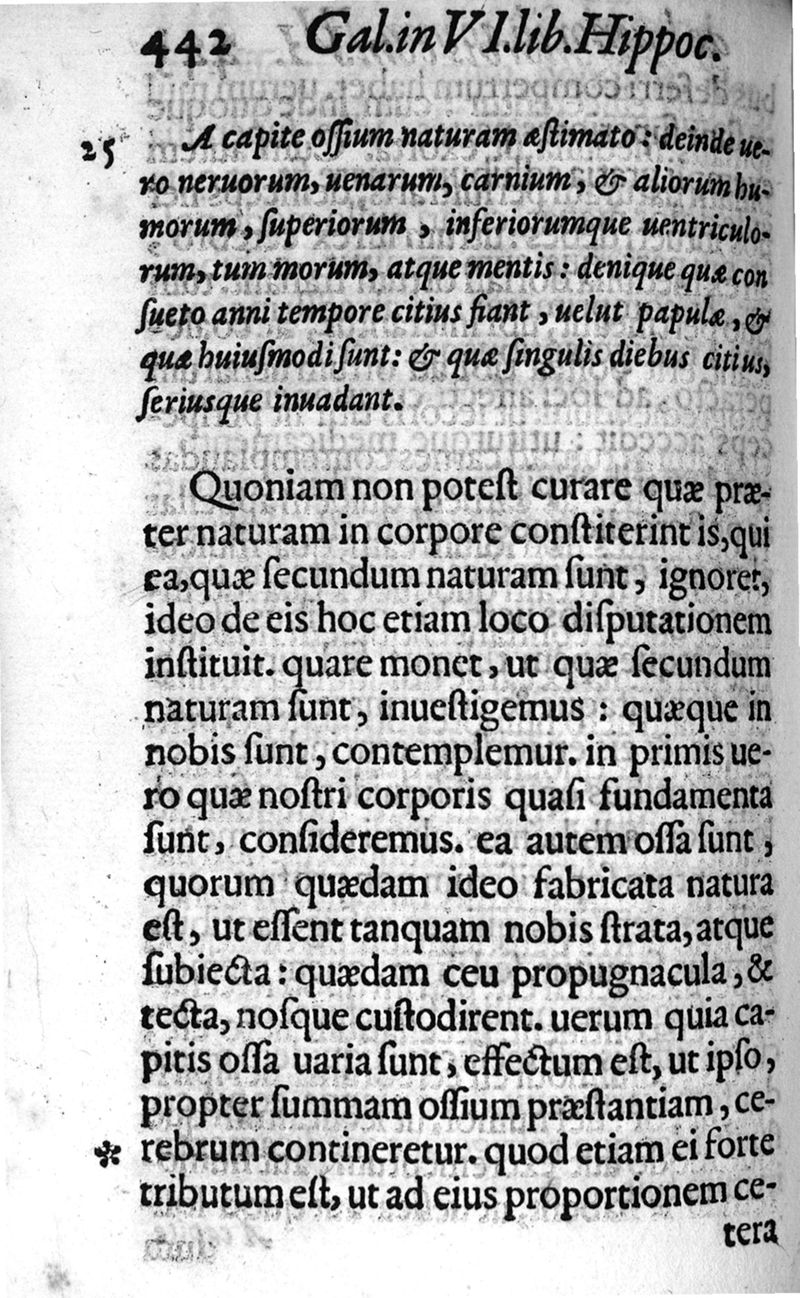 442 Gal.in VI.lib.Hippoc.
25 A capite oſſium naturam æſtimato: deinde ue-
ro neruorum, uenarum, carnium, & aliorum hu-
morum, ſuperiorum , inferiorumque uentriculo-
rum, tum morum, atque mentis: denique quæ con
ſueto anni tempore citius fiant, uelut papulæ, &
quæ huiuſmodi ſunt: & quæ ſingulis diebus citius,
ſeriusque inuadant.
Quoniam non poteſt curare quæ præ-
ter naturam in corpore conſtiterint is,qui
ea,quæ ſecundum naturam ſunt, ignoret,
ideo de eis hoc etiam loco diſputationem
inſtituit. quare monet, ut quæ ſecundum
naturam ſunt, inueſtigemus : quæque in
nobis ſunt, contemplemur. in primis ue-
ro quæ noſtri corporis quaſi fundamenta
ſunt, conſideremus. ea autem oſſa ſunt,
quorum quædam ideo fabricata natura
eſt, ut eſſent tanquam nobis ſtrata, atque
ſubiecta: quædam ceu propugnacula, &
tecta, noſque cuſtodirent. uerum quia ca-
pitis oſſa uaria ſunt, effectum eſt, ut ipſo,
propter ſummam oſſium præſtantiam, ce-
* rebrum contineretur. quod etiam ei forte
tributum eſt, ut ad eius proportionem ce-
tera